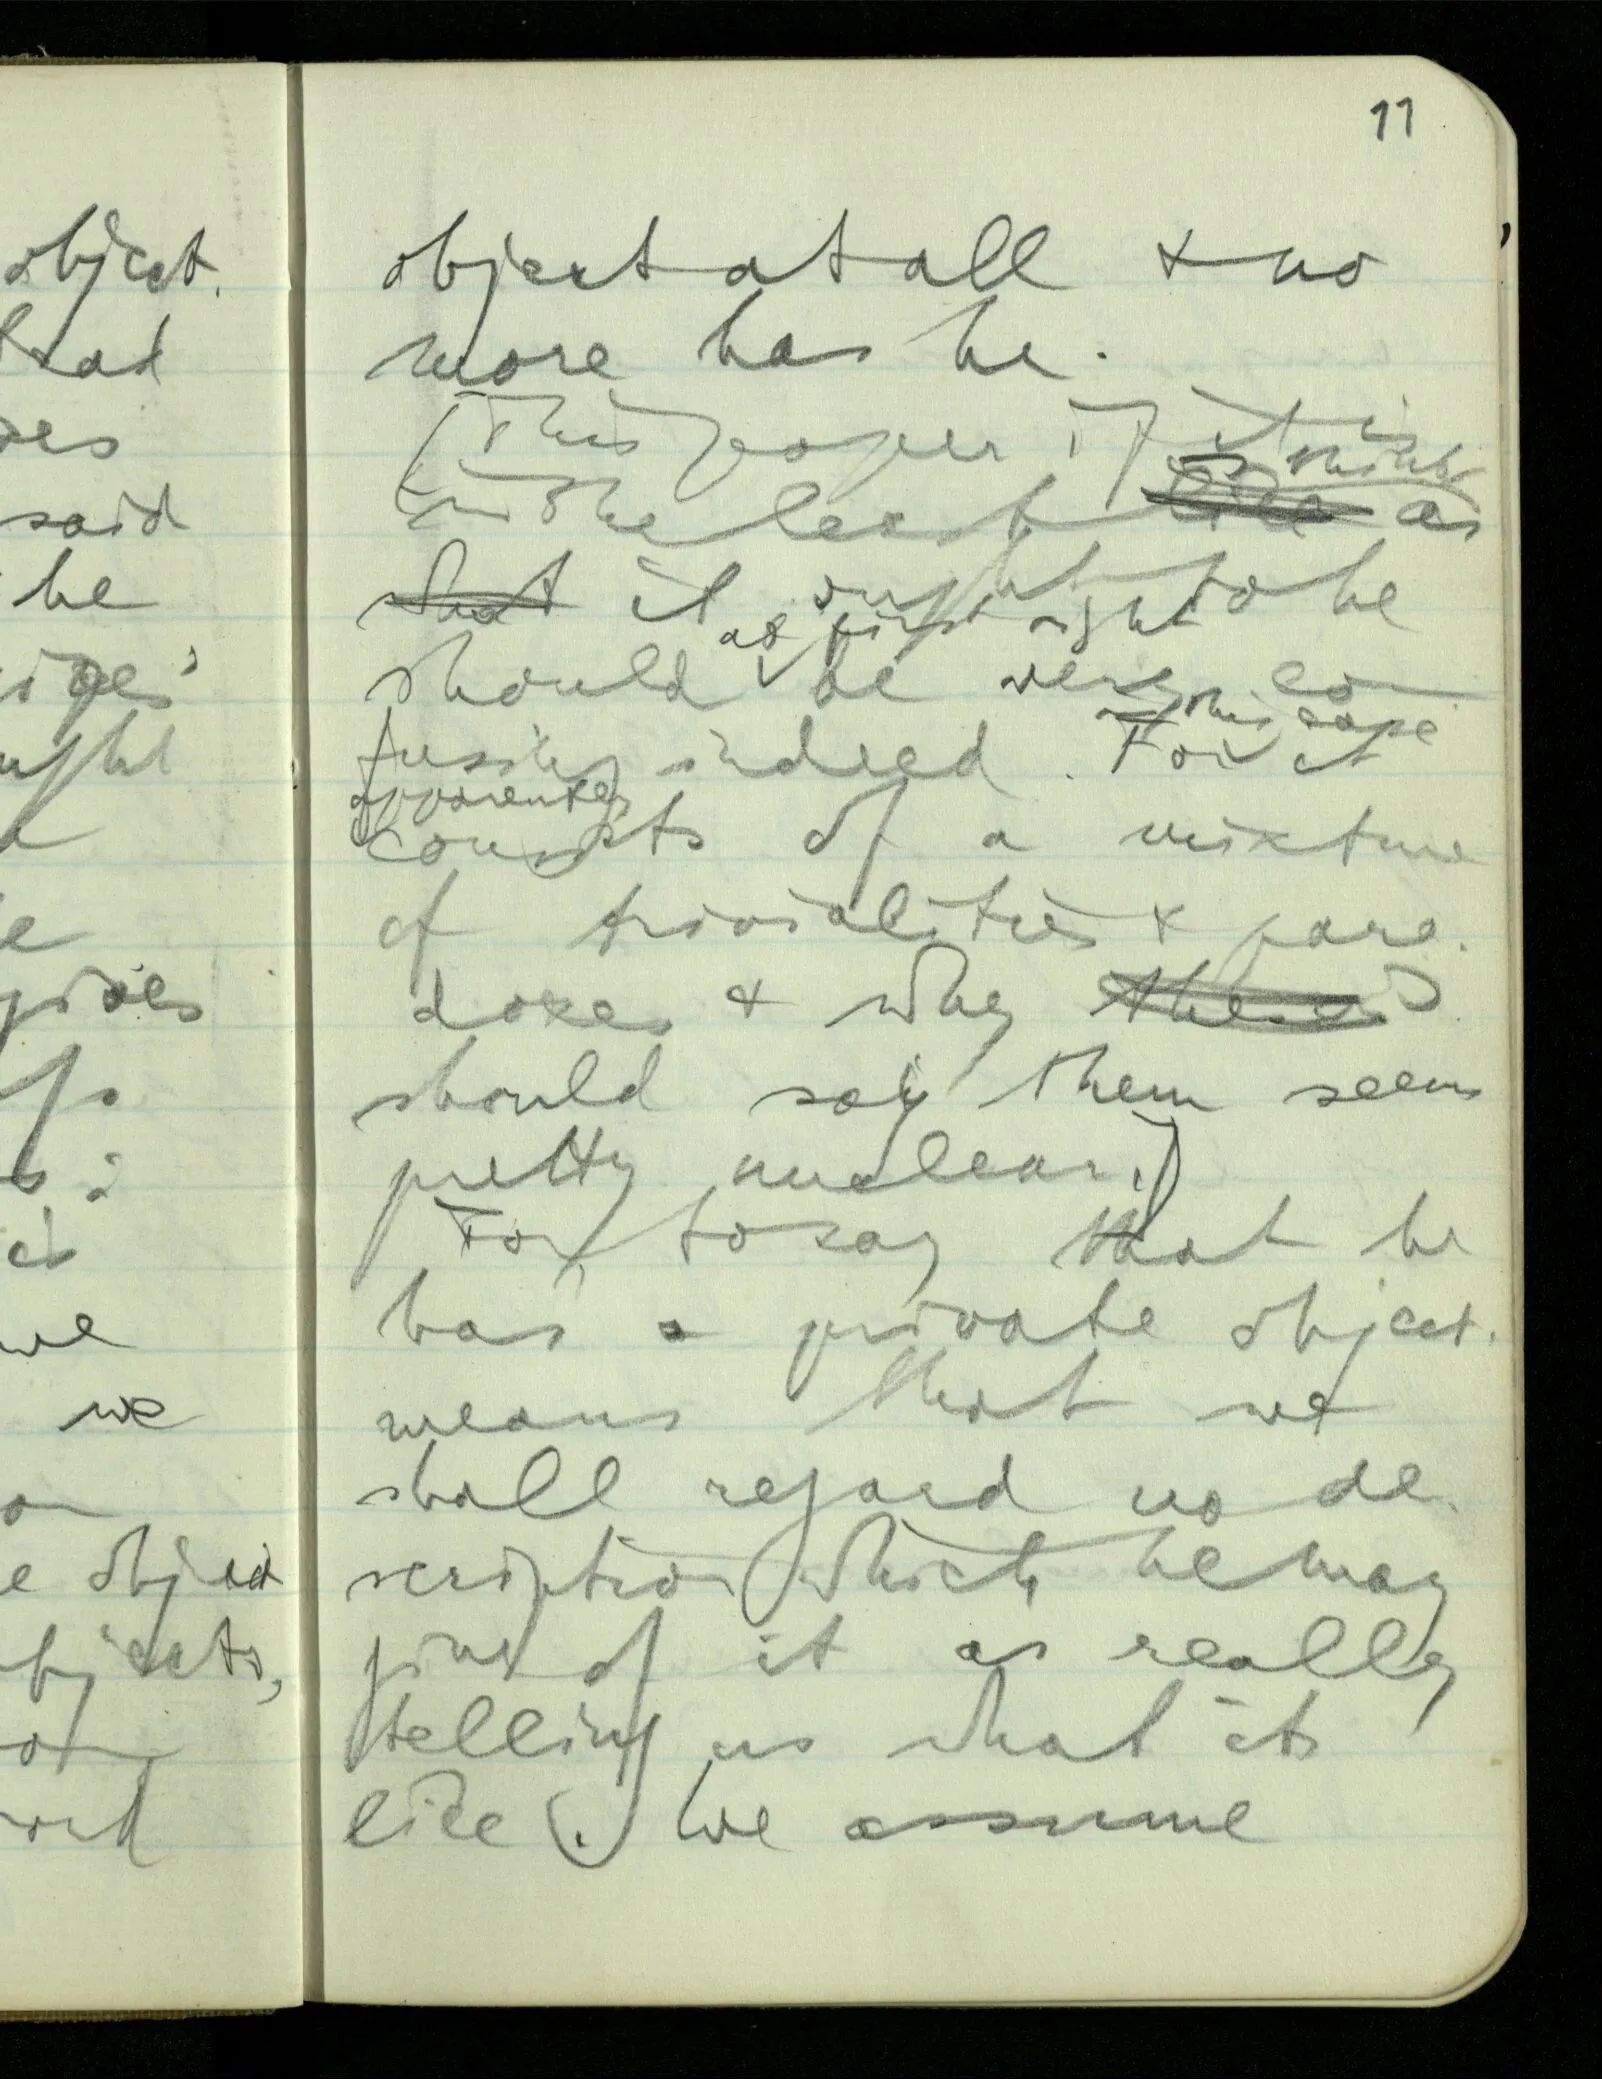 object.
said
he
we
we
object
11
object at all & no
more has he.
(This paper if it is
in the least like as
is might
that it ought to be
at first sight
should be very con
this case
fusing indeed. For it
apparently
consists of a mixture
of trivialities & para-
doxes & why these I
should say them seems
pretty unclear.)
For to say that he
has a private object
means that we
shall regard no de-
scription which he may
give of it as really
telling us what its
like. We assume